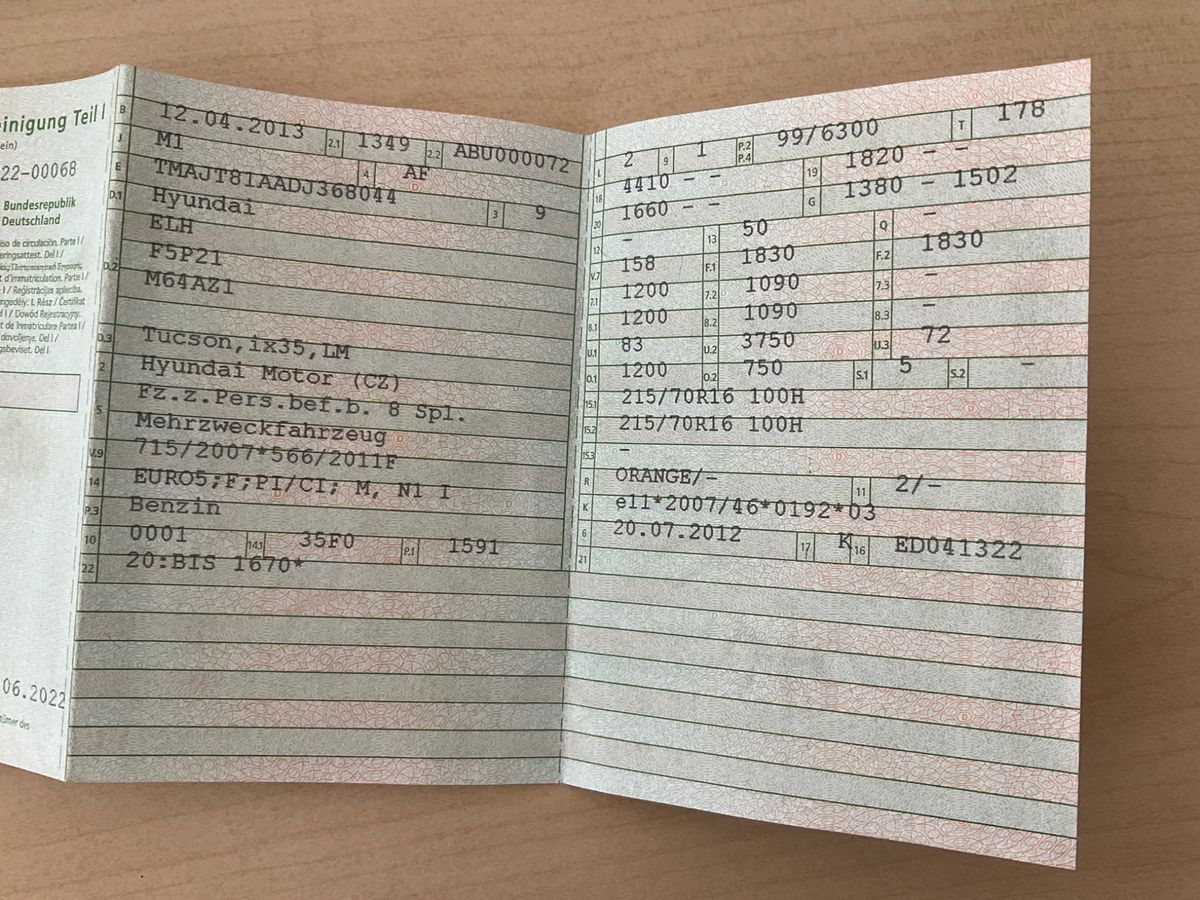 einigung Teil I
ein)
22-00068
Bundesrepublik
Deutschland
iso de circulación. Parte I /
eringsattest. Del I /
t d'immatriculation. Partie I /
I / Reģistrācijas apliecība.
ngedély. I. Rész / Ċertifikat
el I / Dowód Rejestracyjny.
t de înmatriculare Partea I /
davoljenje. Del I /
gsbeviset. Del I
06.2022
tümer des
B 12.04.2013 2.1 1349 2.2 ABU000072
J M1 4 AF
E TMAJT81AADJ368044 3 9
D.1 Hyundai
ELH
D.2 F5P21
M64AZ1
D.3 Tucson,ix35,LM
2 Hyundai Motor (CZ)
5 Fz.z.Pers.bef.b. 8 Spl.
Mehrzweckfahrzeug
V.9 715/2007*566/2011F
14 EURO5;F;PI/CI; M, N1 I
P.3 Benzin
10 0001 14.1 35F0 P.1 1591
22 20:BIS 1670*
L 2 9 1 P.2 P.4 99/6300 T 178
18 4410 - - 19 1820 - -
20 1660 - - G 1380 - 1502
12 - 13 50 Q -
V.7 158 F.1 1830 F.2 1830
7.1 1200 7.2 1090 7.3 -
8.1 1200 8.2 1090 8.3 -
U.1 83 U.2 3750 U.3 72
O.1 1200 O.2 750 S.1 5 S.2 -
15.1 215/70R16 100H
15.2 215/70R16 100H
15.3 -
R ORANGE/- 11 2/-
K e11*2007/46*0192*03
6 20.07.2012 17 K 16 ED041322
21